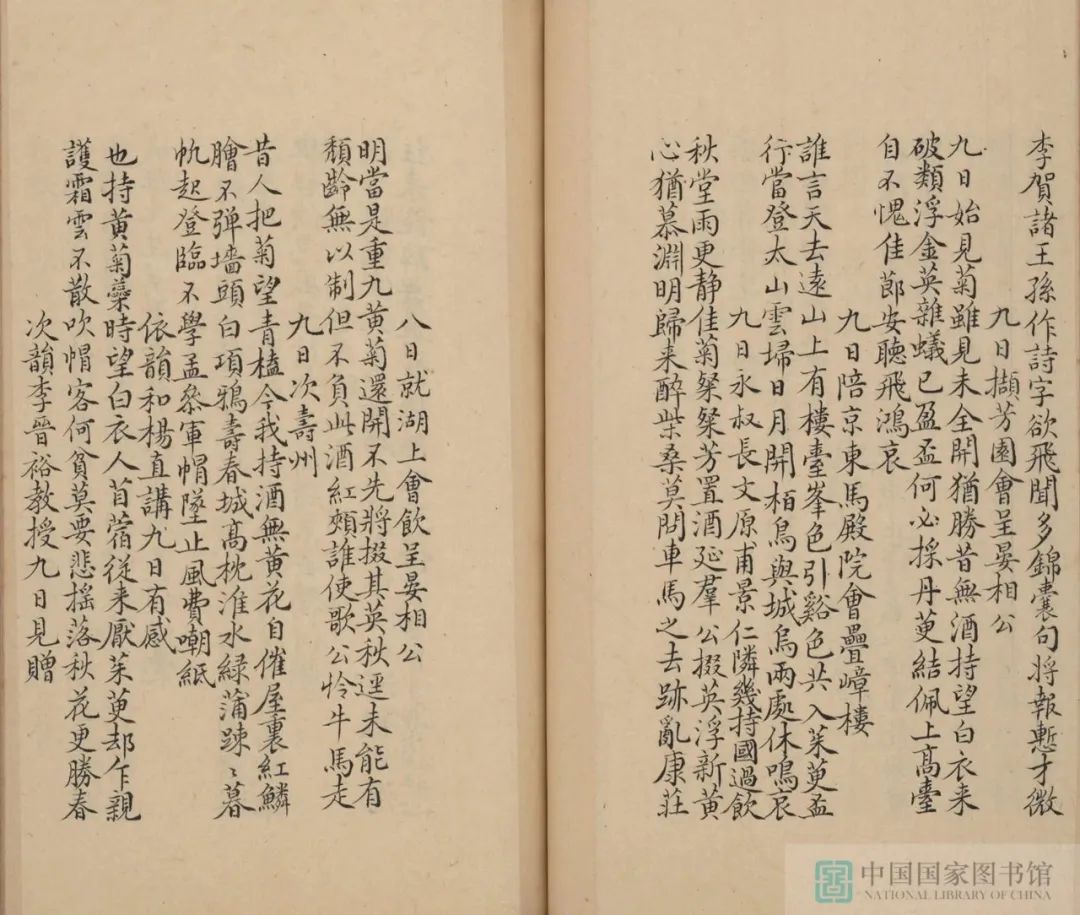 李賀諸王孫作詩字欲飛聞多錦囊句將報慙才微
九日擷芳園會呈晏相公
九日始見菊雖見未全開猶勝昔無酒持望白衣来
破類浮金英雜蟻已盈盃何必採丹萸結佩上高臺
自不愧佳節安聽飛鴻哀
九日陪京東馬殿院會疊嶂樓
誰言天去遠山上有樓臺峯色引谿色共入茱萸盃
行當登太山雲埽日月開栢烏與城烏兩處休鳴哀
九日永叔長文原甫景仁隣幾持國過飲
秋堂雨更静佳菊粲粲芳置酒延羣公掇英浮新黄
心猶慕淵明歸来醉柴桑莫問車馬之去跡亂康莊
八日就湖上會飲呈晏相公
明當是重九黄菊還開不先將掇其英秋逕未能有
頽齡無以制但不負此酒紅頰誰使歌公怜牛馬走
九日次壽州
昔人把菊望青榼今我持酒無黄花自催屋裏紅鱗
膾不弹墻頭白項鴉壽春城高枕淮水緑蒲踈〻暮
帆起登臨不學孟叅軍帽墜止風費嘲紙
依韻和楊直講九日有感
也持黄菊蘂時望白衣人苜蓿從来厭茱萸却乍親
護霜雲不散吹帽客何貧莫要悲摇落秋花更勝春
次韻李晉裕教授九日見贈
中国国家图书馆
NATIONAL LIBRARY OF CHINA